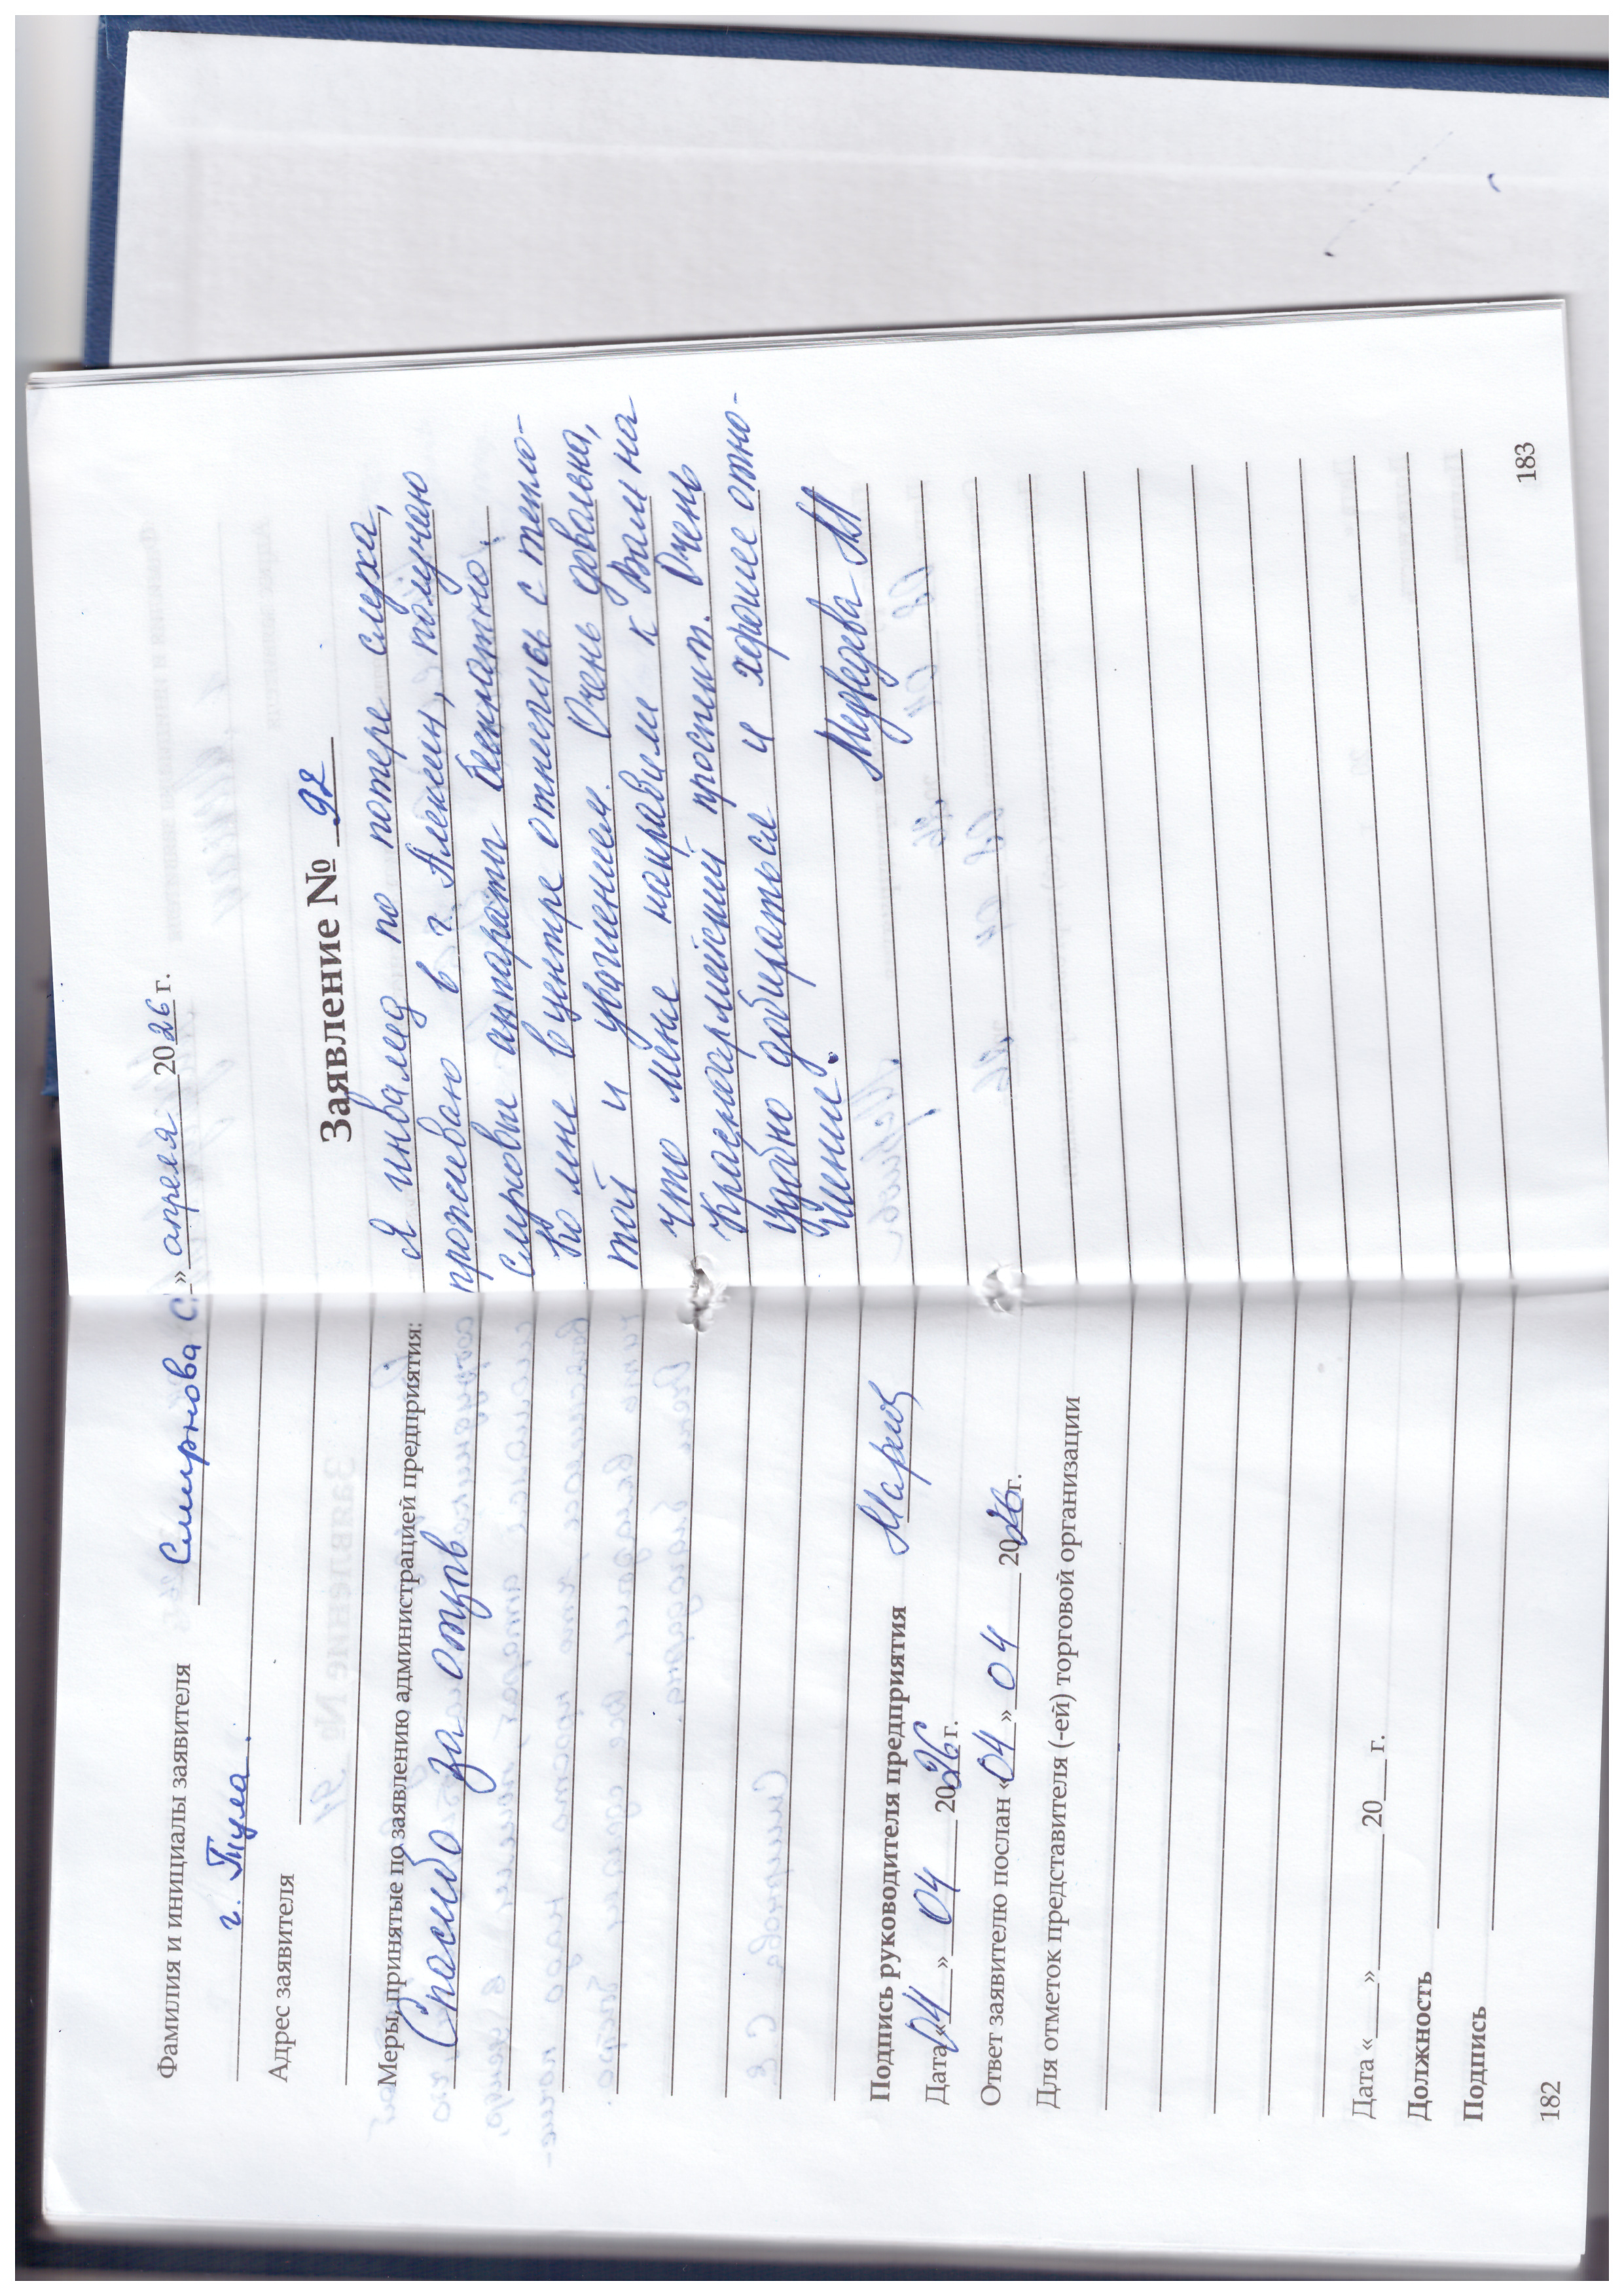 Фамилия и инициалы заявителя Смирнова С.
г. Тула.
Адрес заявителя
Меры, принятые по заявлению администрацией предприятия:
Спасибо за отзыв
Подпись руководителя предприятия
Дата «04» 04 2026 г.
Ответ заявителю послан «04» 04 2026 г.
Для отметок представителя (-ей) торговой организации
Дата « » 20 г.
Должность
Подпись
182
» апреля 2026 г.
Заявление № 92
Я инвалид по потере слуха,
проживаю в г. Алексин, получаю
слуховые аппараты бесплатно.
Ко мне в центре отнеслись с тепло-
той и уважением. Очень довольна,
что меня направили к Вам на
Красноармейский проспект. Очень
удобно добираться и хорошее отно-
шение.
Медведева М
183